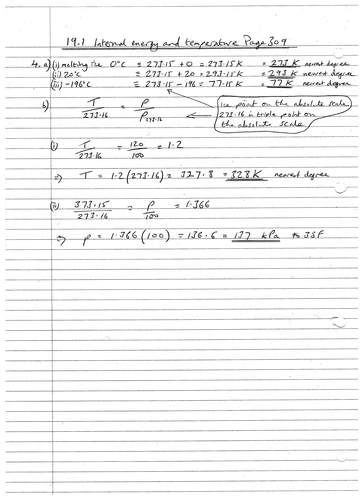 19.1 Internal energy and temperature Page 309
4. a) (i) melting ice 0°C ≡ 273.15 + 0 = 273.15K = 273 K nearest degree
(ii) 20°C ≡ 273.15 + 20 = 293.15K = 293 K nearest degree
(iii) -196°C ≡ 273.15 - 196 = 77.15K = 77 K nearest degree
b) T/273.16 = P/P273.16
ice point on the absolute scale
273.16 is triple point on
the absolute scale
(i) T/273.16 = 120/100 = 1.2
⇒ T = 1.2(273.16) = 327.8 = 328K nearest degree
(ii) 373.15/273.16 = P/100 = 1.366
⇒ P = 1.366(100) = 136.6 = 137 kPa to 3SF